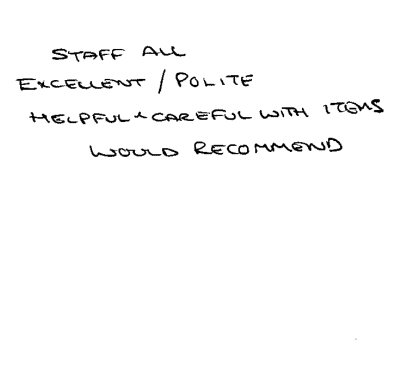 STAFF ALL
EXCELLENT / POLITE
HELPFUL + CAREFUL WITH ITEMS
WOULD RECOMMEND